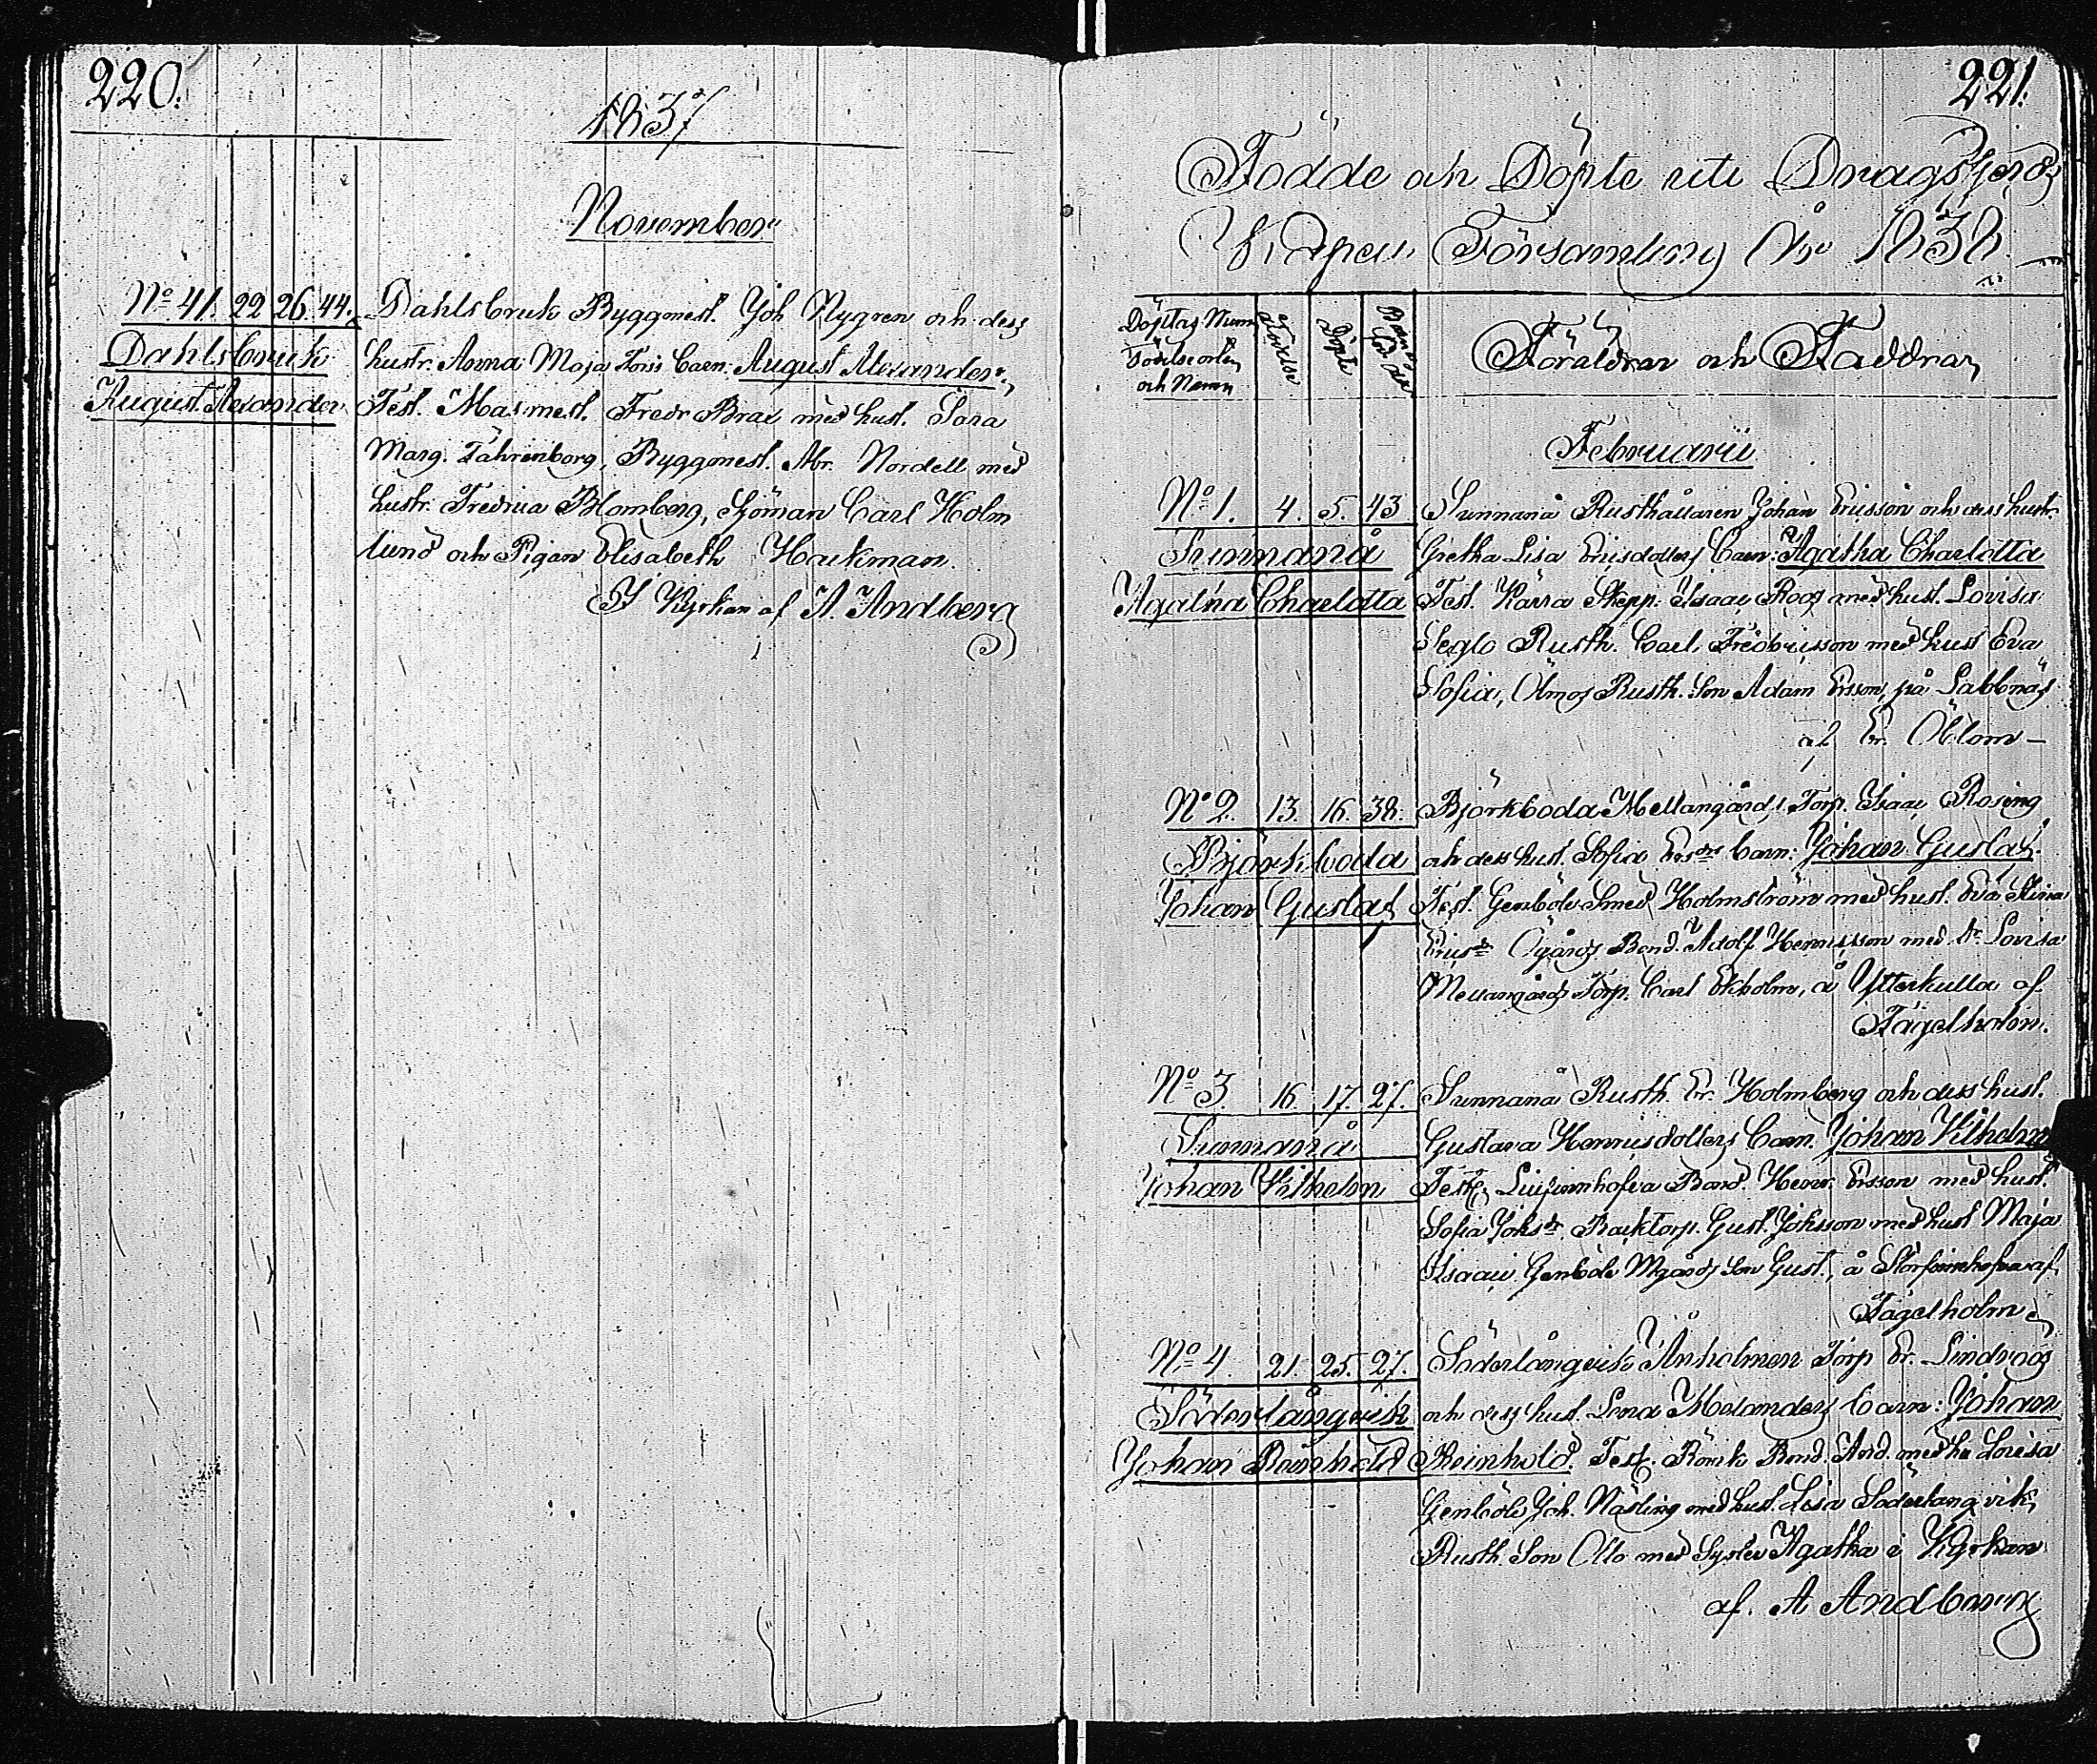 220.
1837
November
No 41. 22 26. 44. Dahlsbruk Byggmest. Joh Nygren och dess
Dahlsbruk hustr. Anna Maja Barn: August Alexander.
August Alexander Test. Masmest. Fredr Brax med hust. Sara
Marg. Fährenborg, Byggmest. Abr. Nordell med
hustr. Fredrica Blomberg, Sjöman Carl Holm
lund och Pigan Elisabeth Hackman.
I Kyrkan af A. Andberg
221.
Födde och Döpte uti Dragsfjerds
Capell Församling År 1838.
Döptas Num Födelse Döpte Föräldrar och Faddrar
Födelseorten
och Namn
Februarii
No 1. 4. 5. 43 Sunnanå Rusthållaren Johan Ericsson och dess hustr.
Sunnanå Gretha Lisa Ericsdotters Barn: Agatha Charlotta
Agatha Charlotta Test. Kärra Skepp. Isaac Roos med hust. Lovisa
Rusth. Carl Fredricsson med hust Eva
Sofia, Ölmos Rusth. Son Adam Ersson, på Labbnäs
af Er.
No 2. 13. 16. 38. Björkboda Mellangårds Torp. Isaac Rosing
Björkboda och dess hust. Sofia Ersdr Barn: Johan Gustaf.
Johan Gustaf Test. Genböle Smed Holmström med hust. Eva Stina
Ericsdr Bond. Adolf Henricsson med Lovisa
Mellangårds Torp. Carl Ekholm, å Ytterkulla af
Tägelholm.
No 3. 16. 17. 27. Sunnanå Rusth. Er. Holmberg och dess hust.
Sunnanå Gustava Henricsdotters Barn. Johan Vilhelm
Johan Vilhelm Test. Bond. Henr. Ersson med hust.
Sofia Johsdr. Gust. Johsson med hust Maja
Genböle Mgårds Son Gust., å af
Tägelholm
No 4. 21. 25. 27. Söderlångvik Ånholmen Torp Er. Lindroos
Söderlångvik och dess hust. Lena Melanders Barn: Johan
Johan Reinhold Reinhold. Test. Bond. And. med hu Lovisa
Genböle Joh. Näsling med hust. Lisa Söderlångvik
Rusth. Son Otto med Syster Agatha i Kyrkan
af. A Andberg